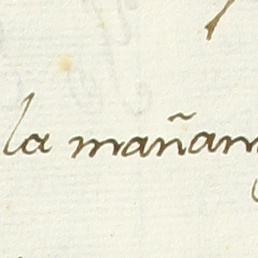 la mañan